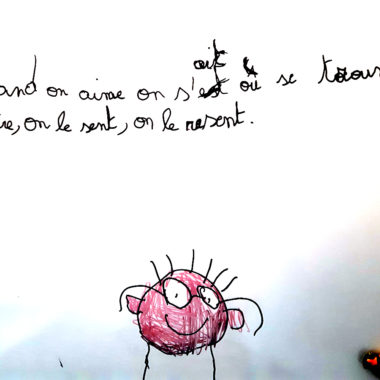 ait
and on aime on s'est où se trouv
on le sent, on le resent.